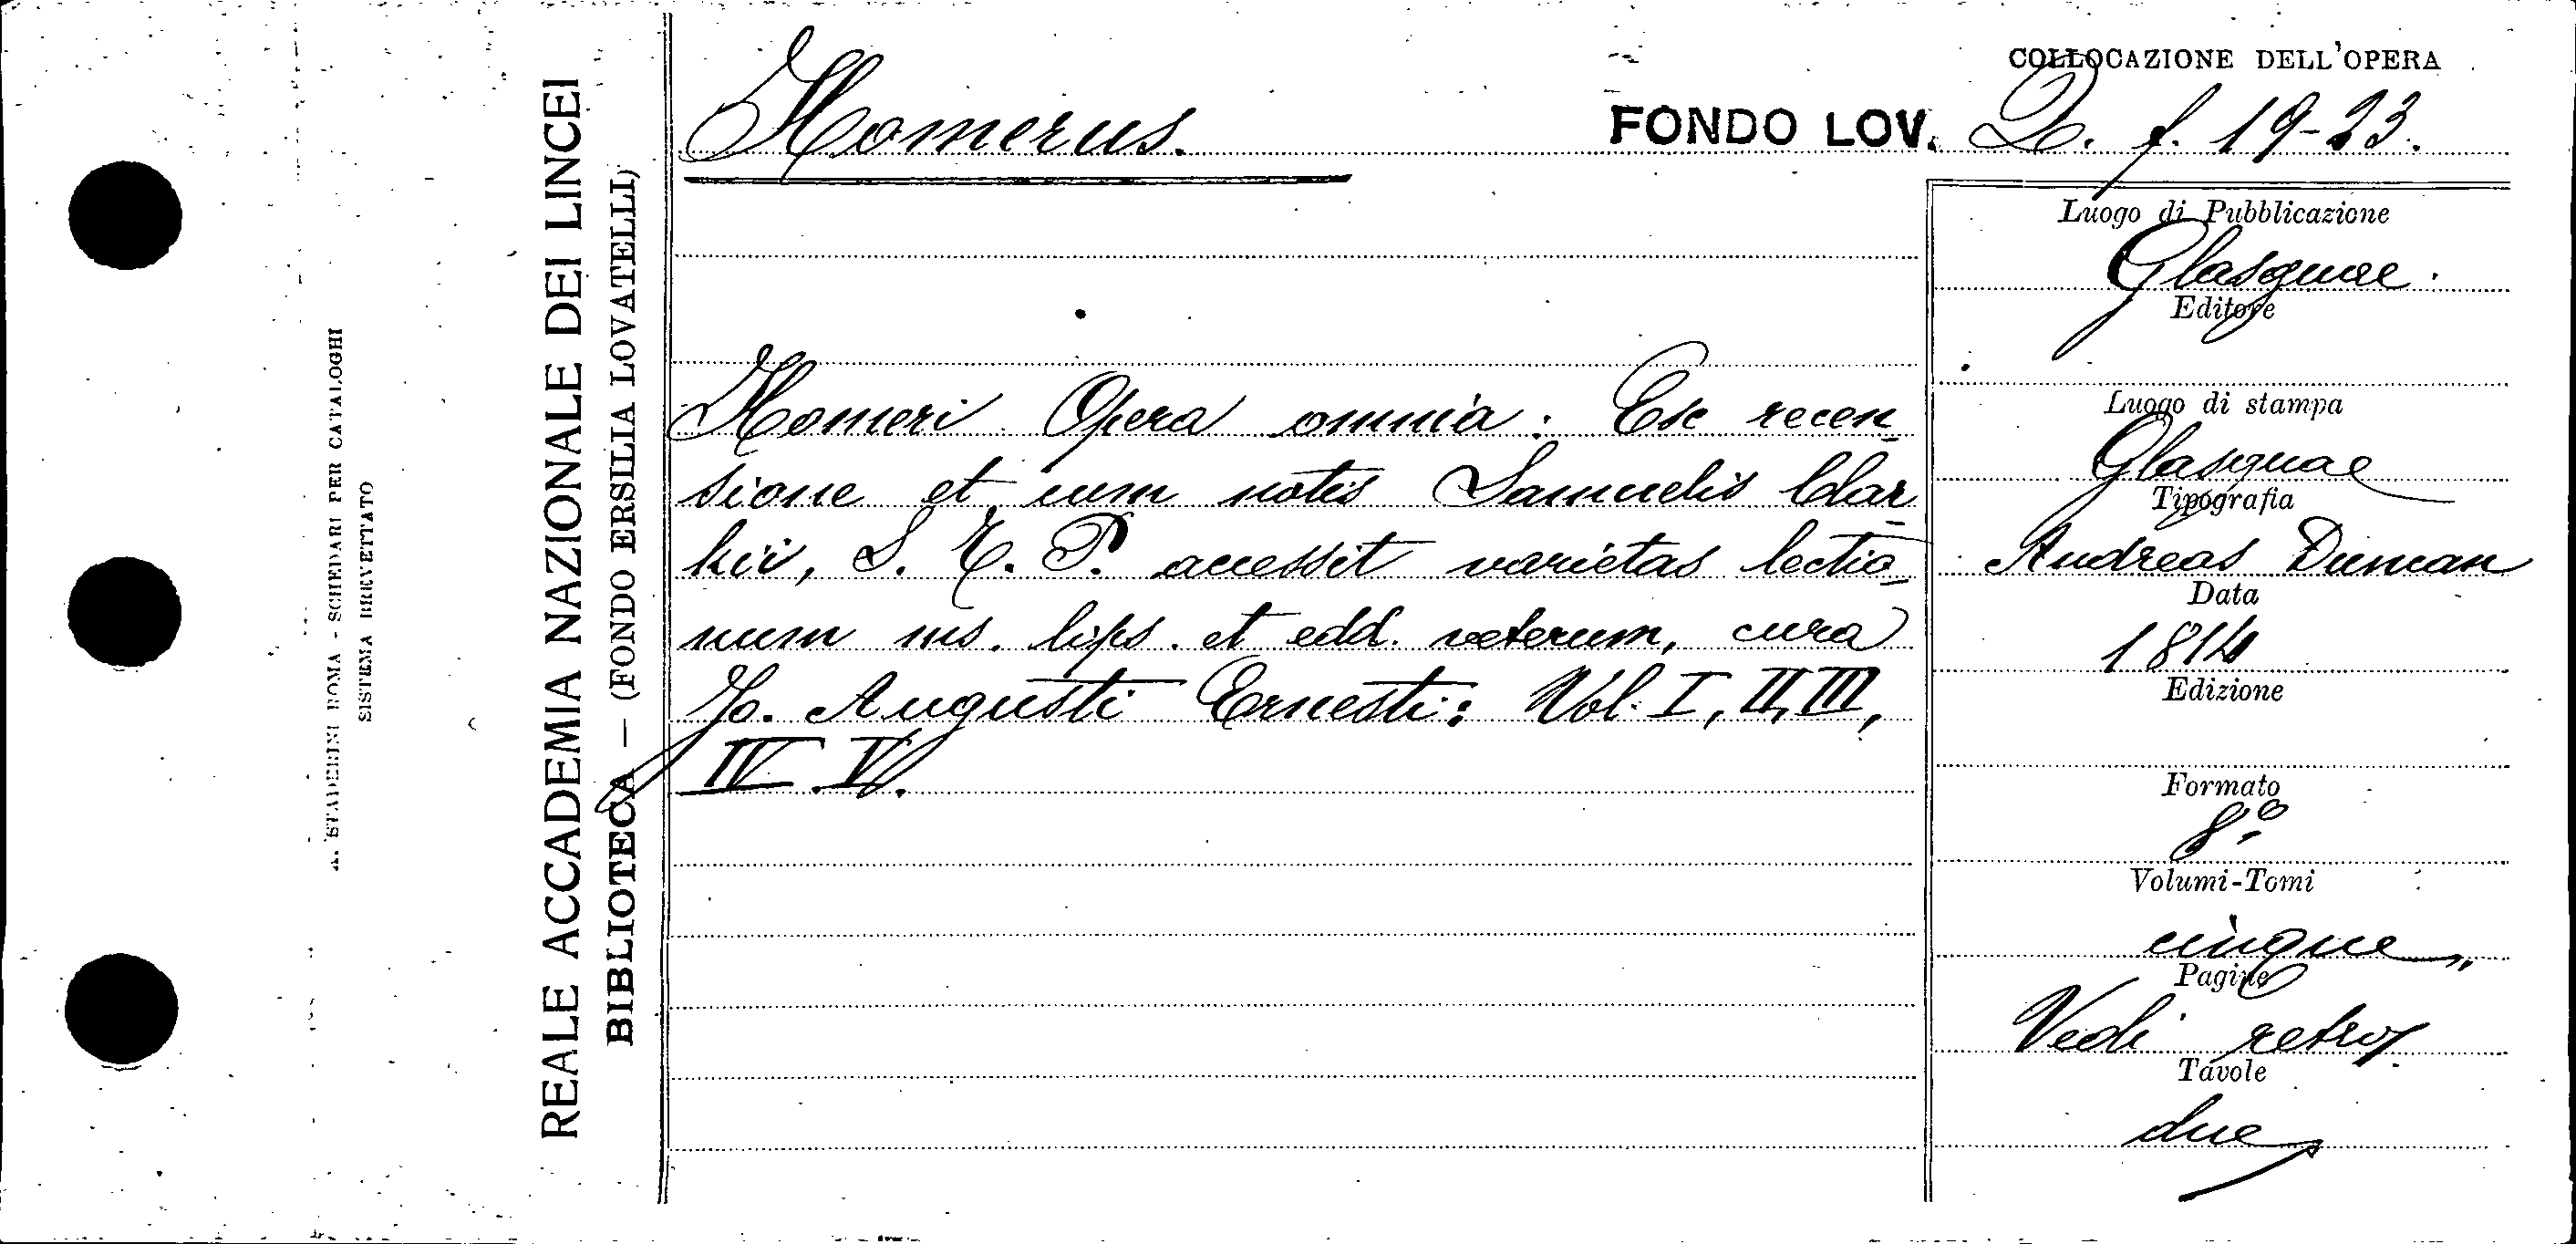 COLLOCAZIONE DELL'OPERA
Homerus.
FONDO LOV. D. f. 19-23.
Luogo di Pubblicazione
Glasguae.
Editore
Luogo di stampa
Glasguae
Tipografia
Andreas Duncan
Data
1814
Edizione
Formato
8º
Volumi-Tomi
cinque
Pagine
Vedi retro
Tavole
due
Homeri Opera omnia: Ex recen-
sione et cum notis Samuelis Clar-
kii, S. T. P. accessit varietas lectio-
num ms. lips. et edd. veterum, cura
Jo. Augusti Ernesti: Vol. I, II, III,
IV. V.
REALE ACCADEMIA NAZIONALE DEI LINCEI
BIBLIOTECA — (FONDO ERSILIA LOVATELLI)
STADERINI ROMA - SCHEDARI PER CATALOGHI
SISTEMA BREVETTATO